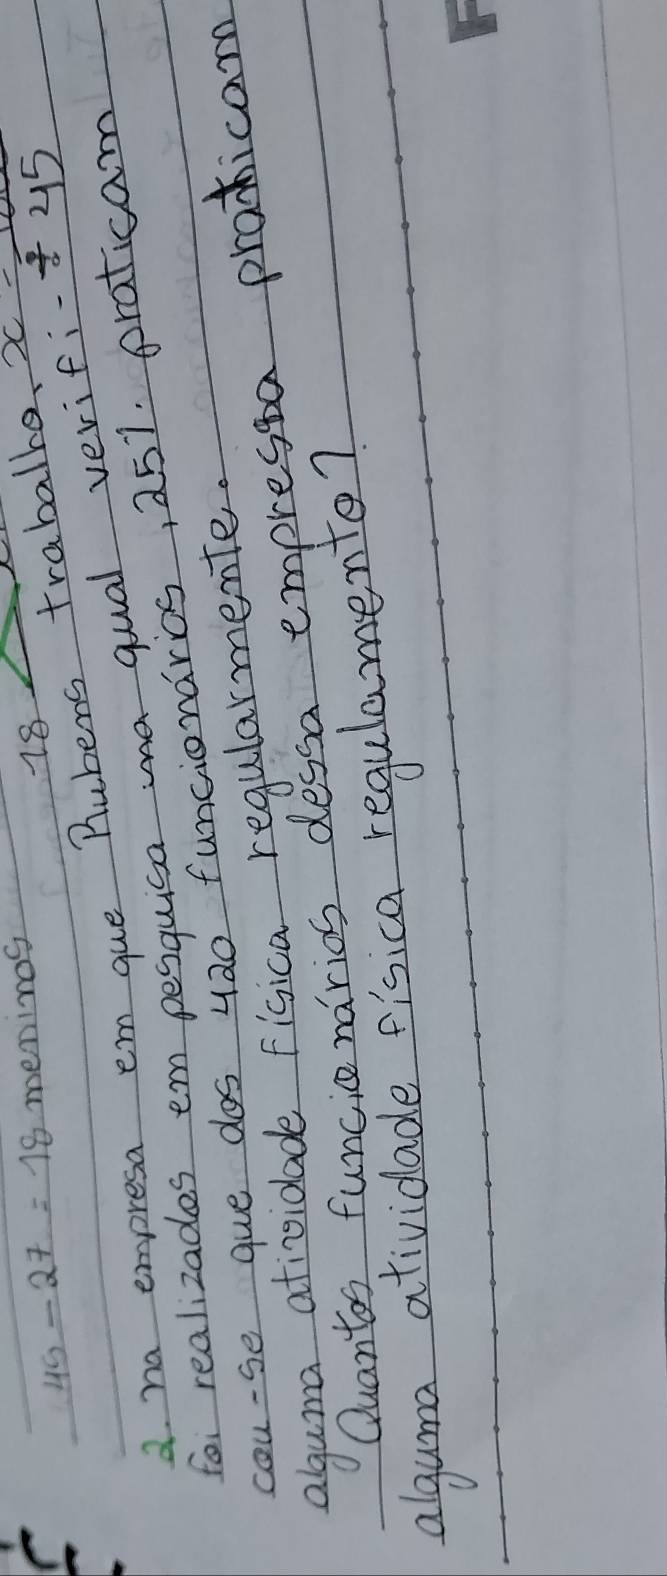 45 - 27 = 18 meninos 18
2. na empresa em que Rubens trabalha, x =
foi realizados em pesquisa uma qual verifi- 45
cou-se que dos 420 funcionários, 25% praticam
alguma atividade física regularmente.
Quantos funcionários dessa empressa praticam
alguma atividade física regulamento?